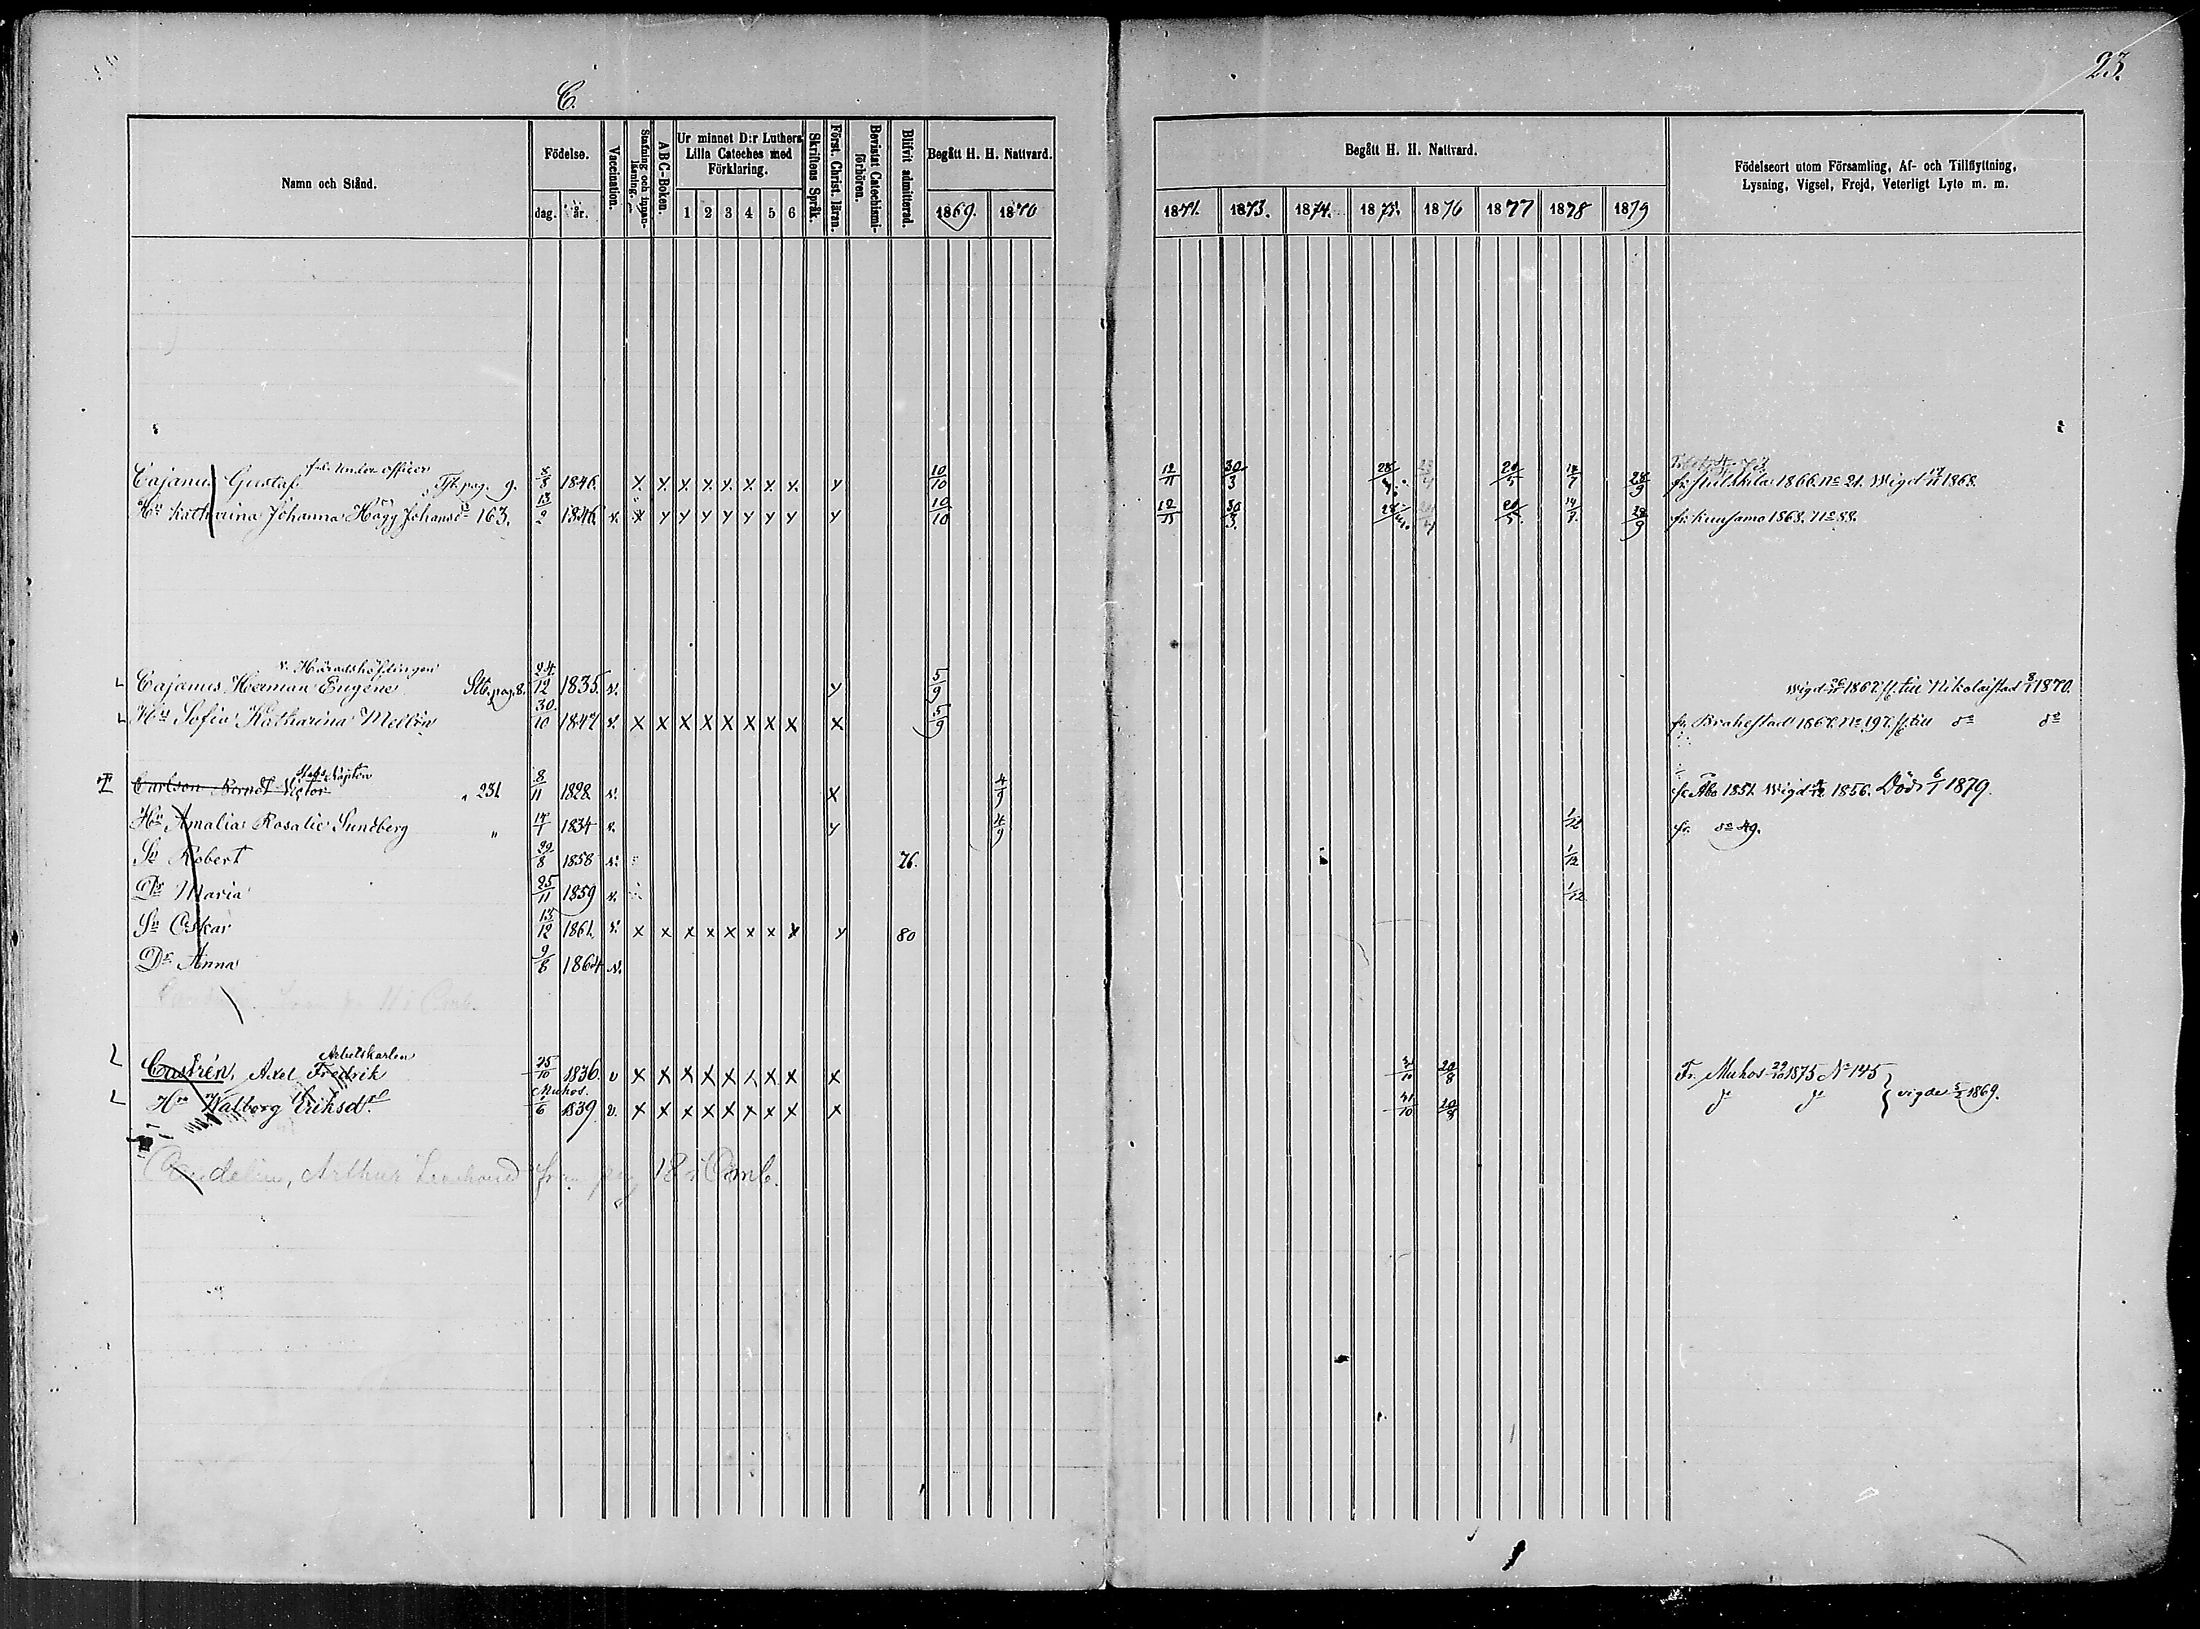 C.
23.
Namn och Stånd.
Födelse.
dag.
år.
Vaccination.
Stafning och innanläsning.
ABC-Boken.
Ur minnet D:r Luthers
Lilla Cateches med
Förklaring.
1 2 3 4 5 6
Skriftens Språk.
Först. Christ. läran.
Bevistat Catechismi-
förhören.
Blifvit admitterad.
Begått H. H. Nattvard.
1869. 1870
Begått H. H. Nattvard.
1871. 1873. 1874. 1875. 1876 1877 1878 1879
Födelseort utom Församling, Af- och Tillflyttning,
Lysning, Vigsel, Frejd, Veterligt Lyte m. m.
Under officer
Cajanus Gustaf pag. 9. 1846. x x x x x x x x y 10/10 12/11 30/3 20/5 14/7 28/9 1866. No 21. Wigd 1868.
Hu Katharina Johanna Hägg Johansd 163. 13/2 1846. v. x y y y y y y y y 10/10 12/11 30/3. 20/5. 14/7. 28/9 fr. Kuusamo 1868. No 88.
v. Häradshöfdingen
Cajanus Herman Eugéne Stb. pag. 8. 24/12 1835. v. y 5/9 Wigd 1867. fl. till Nikolaistad 1870.
Hu Sofia Katharina Mellin 30/10 1847 v. x x x x x x x x x 5/9 fr. Brahestad 1867. No 197. fl. till do do
Kapten
Carlson Berndt Victor " 231 8/11 1828 v. x 4/9 fr. Åbo 1851. Wigd 1856. Död 6/1 1879.
Hu Amalia Rosalie Sundberg " 14/1 1834 v. y 4/9 1/12 fr. do 49.
Sn Robert 29/8 1858 v. 76. 1/12
Dr Maria 25/11 1859 v. 1/12
Sn Oskar 13/12 1861. v. x x x x x x x x y 80
Dr Anna 9/8 1864 v.
Arbetskarlen
Castrén, Axel Fredrik 25/10 1836. v x x x x x x x x x 31/10 20/8 Fr. Muhos 22/10 1875 No 145
Muhos.
Hu Walborg Eriksdr /6 1839. v. x x x x x x x x x 31/10 20/8 do do } vigde 1869.
delin, Arthur pag 18 i Comb.